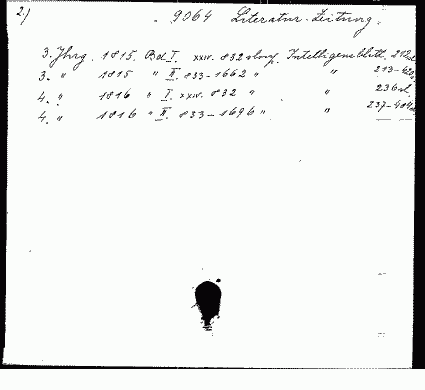 2)
9064 Literatur-Zeitung.
3. Jhrg. 1815. Bd I. xxiv. 832 sloup. Intelligenzblatt. 212 sl.
3. " 1815 " II. 833-1662 " " 213-
4. " 1816 " I. xxiv. 832 " " 236 sl.
4. " 1816 " II. 833-1696 " " 237-404